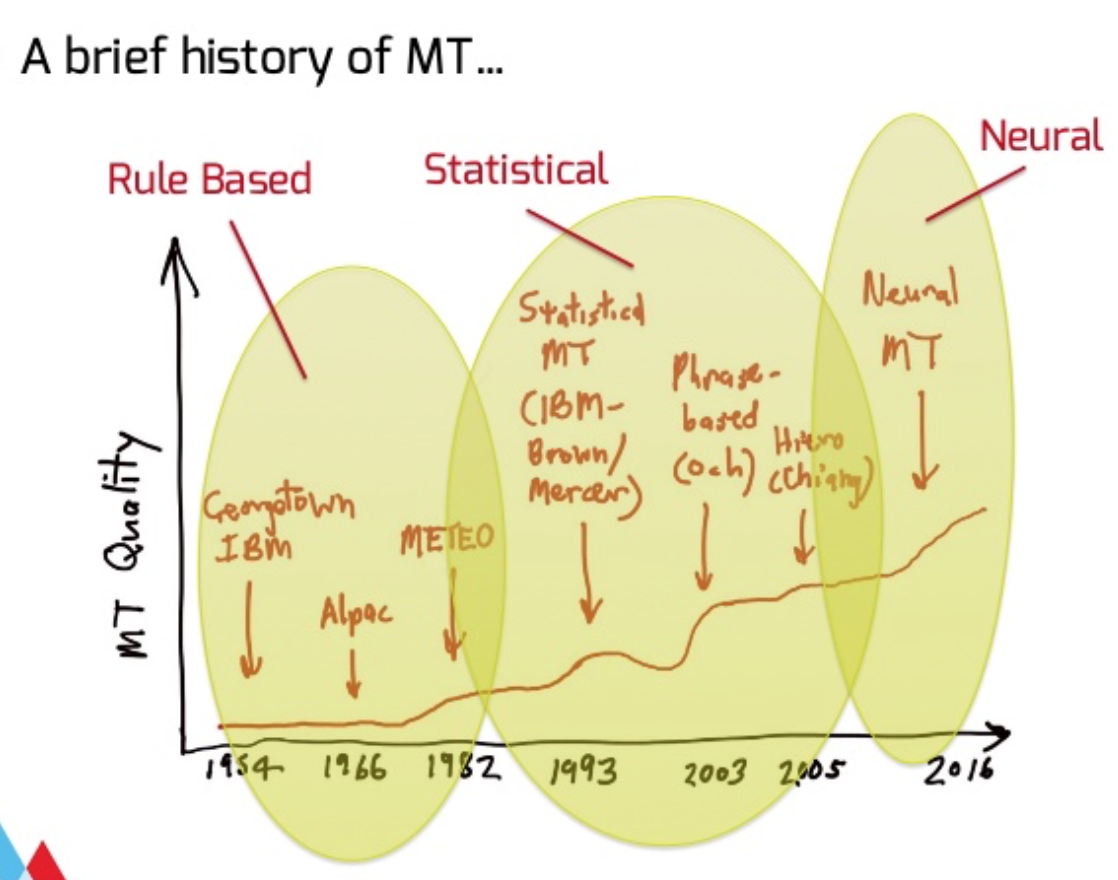 A brief history of MT...
Rule Based
Statistical
Neural
MT Quality
Georgetown
IBM
Alpac
METEO
Statistical
MT
(IBM-
Brown/
Mercer)
Phrase-
based
(Och)
Hiero
(Chiang)
Neural
MT
1954
1966
1982
1993
2003
2005
2016